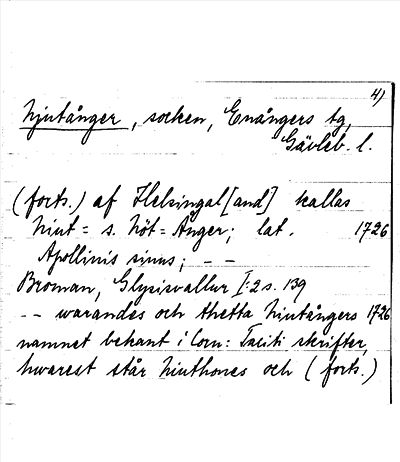 4)
Njutånger, socken, Enångers tg,
Gävleb. l.
(forts.) af Helsingal[and] kallas
Niut= s. Nöt=Ånger; lat. 1726
Apollinis sinus; – –
Broman, Glysisvallur I:2 s. 139
– – warandes och thetta Niutångers 1726
namnet bekant i Corn: Taciti skrifter,
hwarest står Niuthones och (forts.)